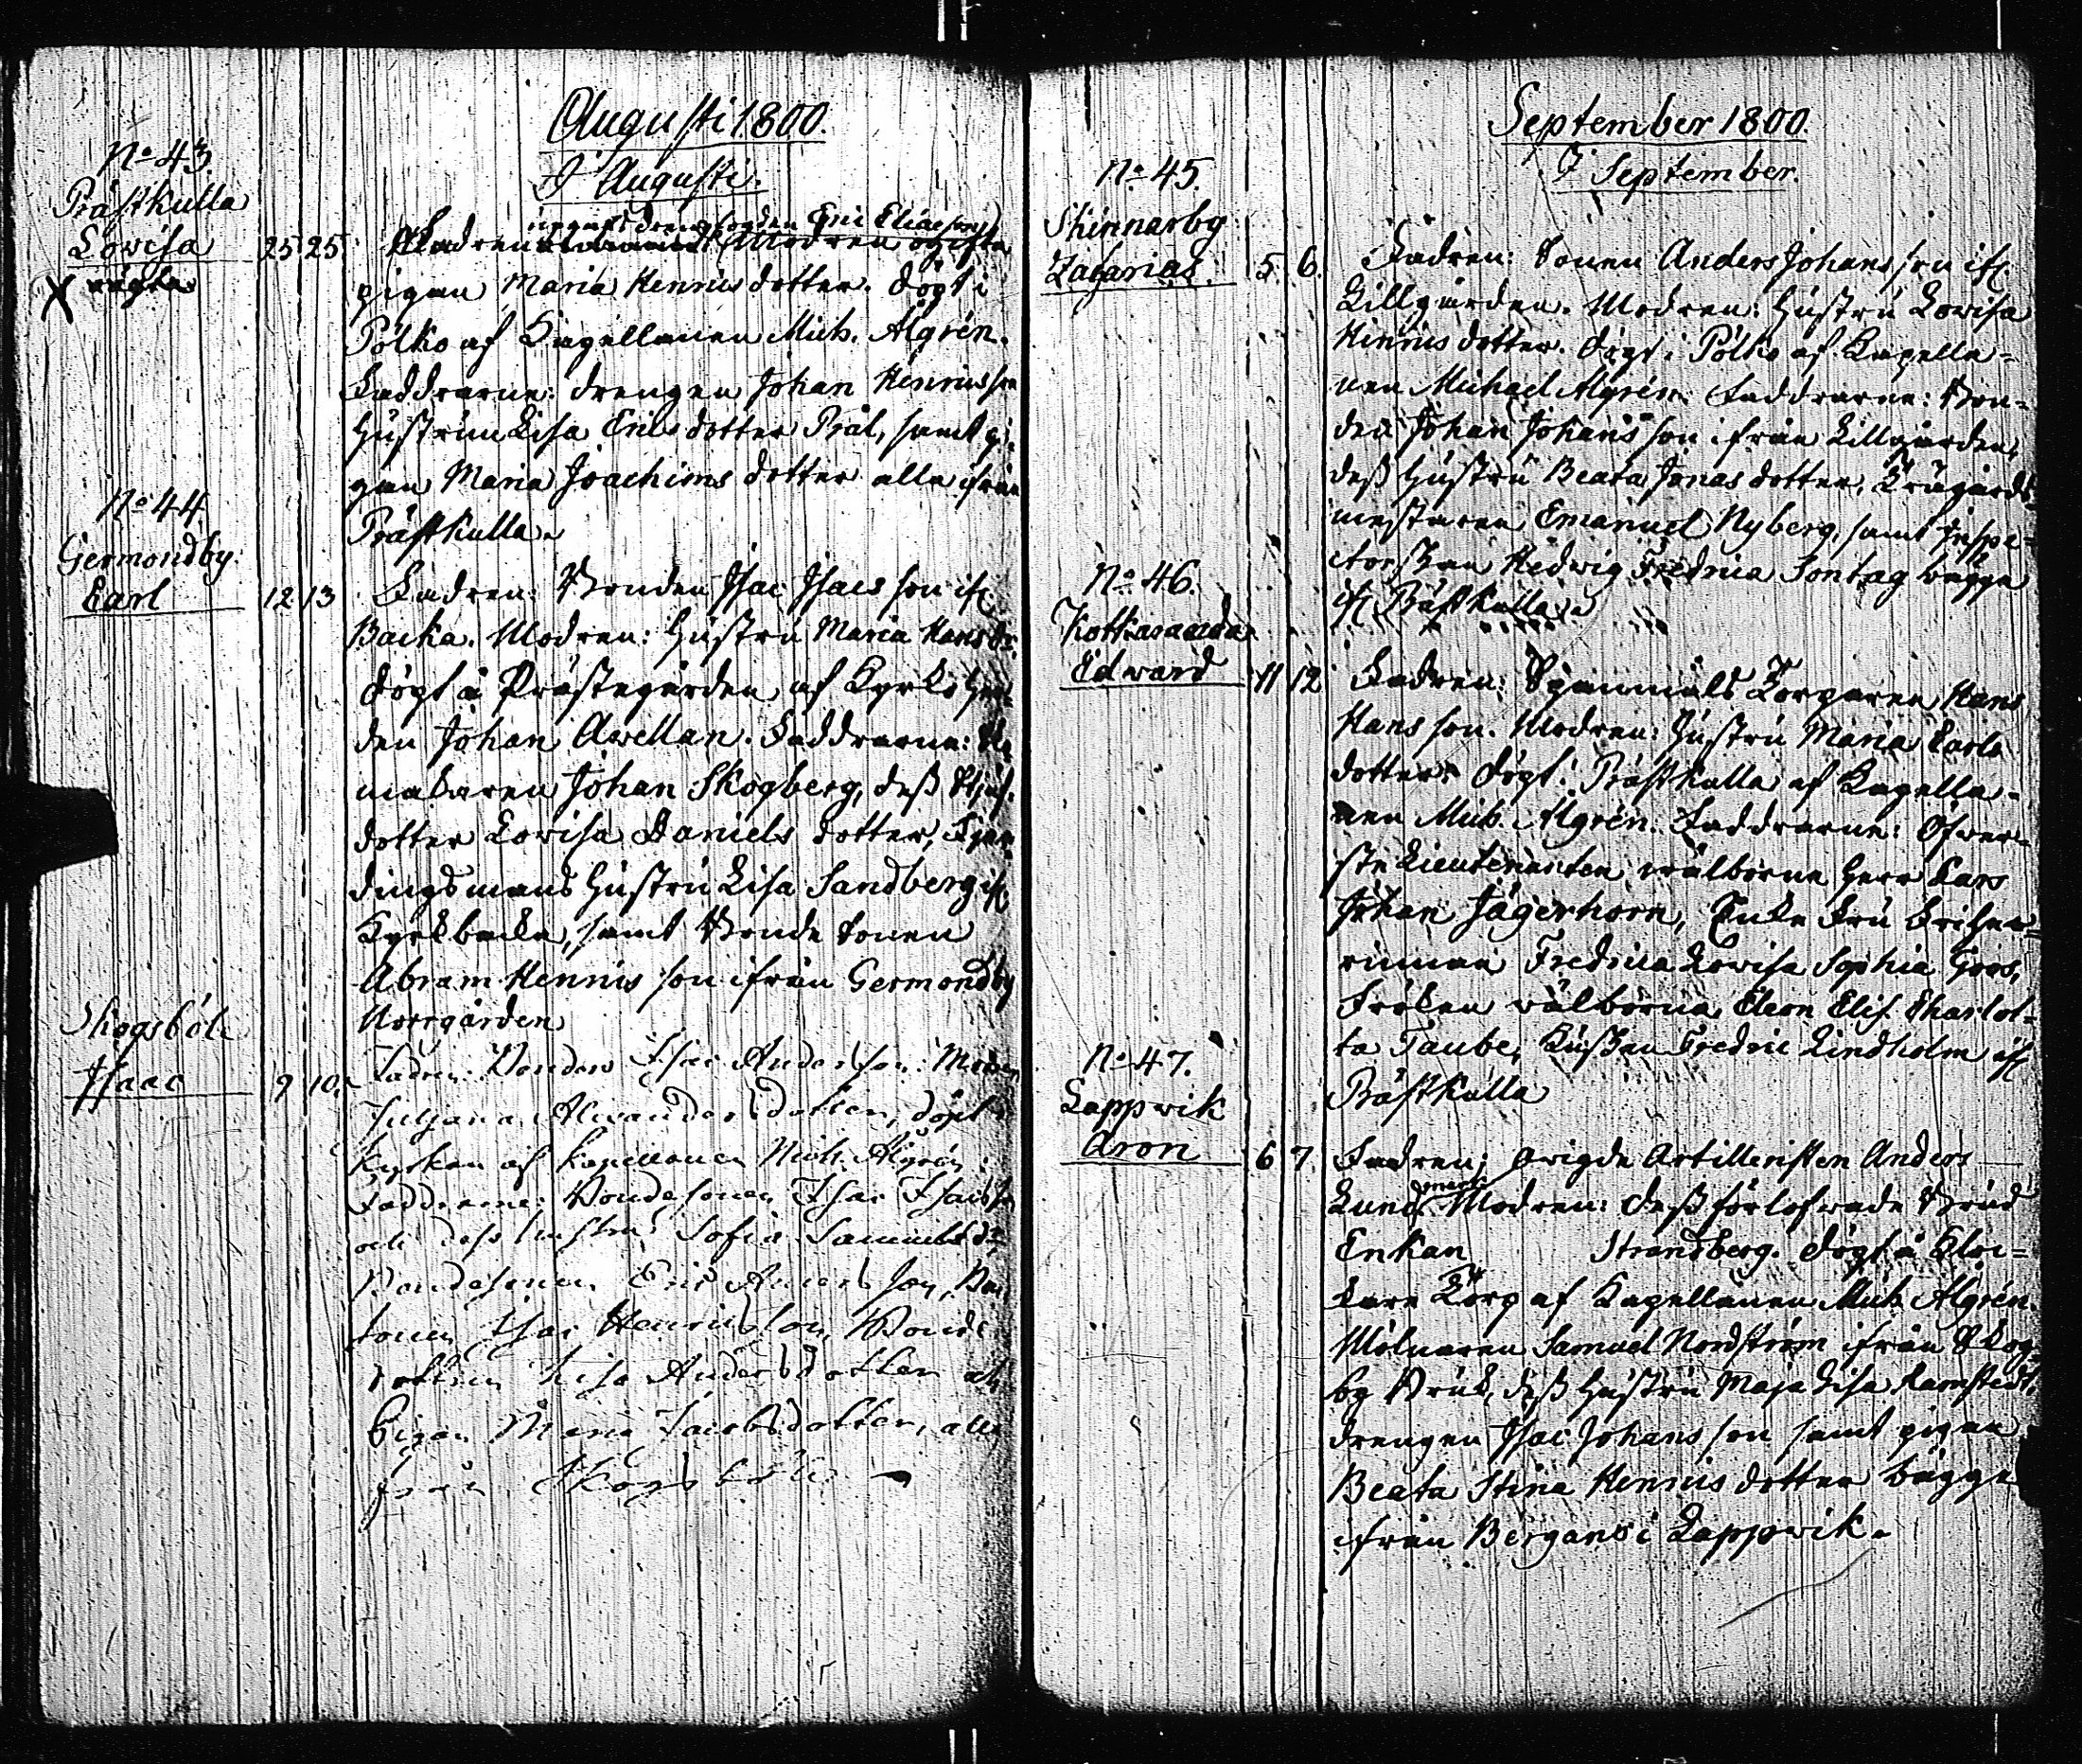 Augusti 1800.
I Augusti.
No 43.
Prästkulla
Lovisa 25 25
oägta
Fadren uppgifs drengkogden Eric Eliæson Modren ogifta
pigan Maria Henricsdotter. döpt i
Pölkö af Capellanen Mich. Algrén.
Faddrarne: drengen Johan Henricsson
Hustrun Lisa Ericsdotter Prål, samt pi-
gan Maria Joachimsdotter alla ifrån
Prästkulla.
No 44
Germondby
Carl 12 13
Fadren: Bonden Isac Isacsson ifr.
Backa. Modren: Hustru Maria Hansdr.
döpt å Prästegården af Kyrkoher-
den Johan Avellan. Faddrarne:
makaren Johan Skogberg, dess
dotter Lovisa Daniels dotter, Fjer-
dingsmans Hustru Lisa Sandberg ifr.
Kyrkbacka, samt Bonde sonen
Abram Henricsson ifrån Germondby
Norrgården
Skogsböle
Isaac 9 10.
Fadren: Bonden Isac Andersson. Modren
Juljana Alexandersdotter, döpt i
Kyrkan af Kapellanen Mich. Algrén.
Faddrarne; Bondesonen Isac Isacsson
och dess hustru Sofia Samuelsdr
Bondesonen Eric Andersson, Bon
sonen Isac Henricsson, Bonde
dottren Lisa Andersdotter och
Pigan Maria Jacobsdotter, alla
från Skogsböle
September 1800.
I September.
No 45.
Skinnarby
Zacharias. 5. 6.
Fadren: Sonen Anders Johansson ifr.
Lillgården. Modren: Hustru Lovisa
Hinricsdotter. döpt i Pölkö af Capella-
nen Michael Algrén. Faddrarne: Bon-
den Johan Johansson ifrån Lillgården,
dess Hustru Beata Jonasdotter, Trägårds-
mästaren Emanuel Nyberg, samt Inspe-
ctorskan Hedwig Fredrica Sontag bägge
ifr. Prästkulla.
No 46.
Kottkasanda
Edward 11 12
Fadren: Spanmåls Torparen Hans
Hansson. Modren: Hustru Maria Carls
dotter. döpt i Prästkulla af Capella-
nen Mich. Algrén. Faddrarne: Öfver-
ste Lieutenanten välborne Herr Lars
Johan Jägerhorn, Enke Fru Friher-
rinnan Fredrica Lovisa Sophia Goos,
Fröken välborna Eleon Elis. Charlot-
ta Taube, Kusken Fredric Lindholm ifr.
Prästkulla
No 47.
Lappwik
Aron 6 7.
Fadren: ovigde Artilleristen Anders
Lundmark Modren: dess förlofvade Brud
Enkan Strandberg. döpt å Kloc-
kare Torp af Capellanen Mich Algrén.
Mölnaren Samuel Nordström ifrån Skog-
by Bruk, dess Hustru Maja Lisa Ramstedt.
drengen Isac Johansson samt pigan
Beata Stina Henricsdotter bägge
ifrån Bergans i Lappwik.